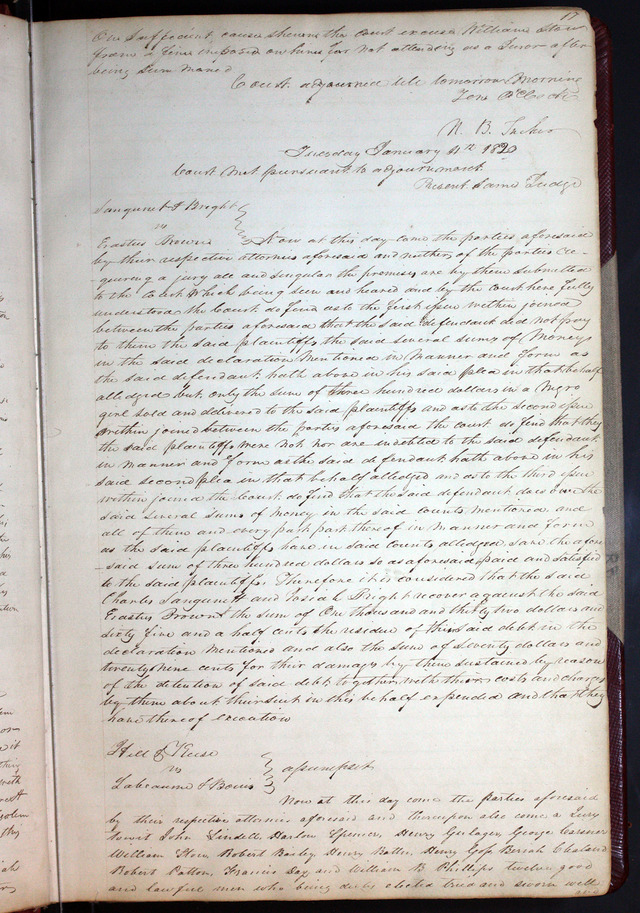 17
On sufficient cause shewn the court excuse William Stow
from a fine imposed on him for not attending as a Juror after
being Summoned
Court adjourned till tomorrow Morning
Ten O'Clock
N. B. Tucker
Tuesday January 4th 1820
Court met pursuant to adjournment
Present Same Judge
Sanguinet & Bright
vs
Erastus Brown Now at this day came the parties aforesaid
by their respective attornies aforesaid and neither of the parties re-
-quiring a jury all and singular the premises are by them submitted
to the Court which being seen and heard and by the Court here fully
understood the Court do find as to the first issue within joined
between the parties aforesaid that the said defendant did not pay
to them the said plaintiffs the said several sums of Money
in the said declaration mentioned in Manner and Form as
the said defendant hath above in his said plea in that behalf
alledged but only the sum of three hundred dollars in a Negro
girl sold and delivered to the said plaintiffs and as to the second issue
within joined between the parties aforesaid the court do find that they
the said plaintiffs were not nor are indebted to the said defendant
in manner and Form as the said defendant hath above in his
said second plea in that behalf alledged and as to the third issue
within joined the Court do find that the said defendant does owe the
said several sums of money in the said counts mentioned and
all of them and every part thereof in Manner and Form
as the said plaintiffs have in said counts alledged save the afore
-said sum of three hundred dollars so as aforesaid paid and satisfied
to the said plaintiffs. Therefore it is considered that the said
Charles Sanguinet and Josiah Bright recover against the said
Erastus Brown the sum of One thousand and thirty two dollars and
sixty five and a half cents the residue of the said debt in the
declaration mentioned and also the sum of seventy dollars and
twenty nine cents for their damages by them sustained by reason
of the detention of said debt together with their costs and charges
by them about their suit in this behalf expended and that they
have thereof execution
Hill & Keese
vs assumpsit
Labeaume & Bouis
Now at this day come the Parties aforesaid
by their respective attornies aforesaid and thereupon also come a Jury
towit John Lindell, Harlow Spencer, Henry Gulager, George Casner
William Stow, Robert Bailey, Henry Battu, Henry Goss, Beriah Cleland
Robert Patton, Francis Day, and William B Phillips twelve good
and lawful men who being duly elected tried and sworn well